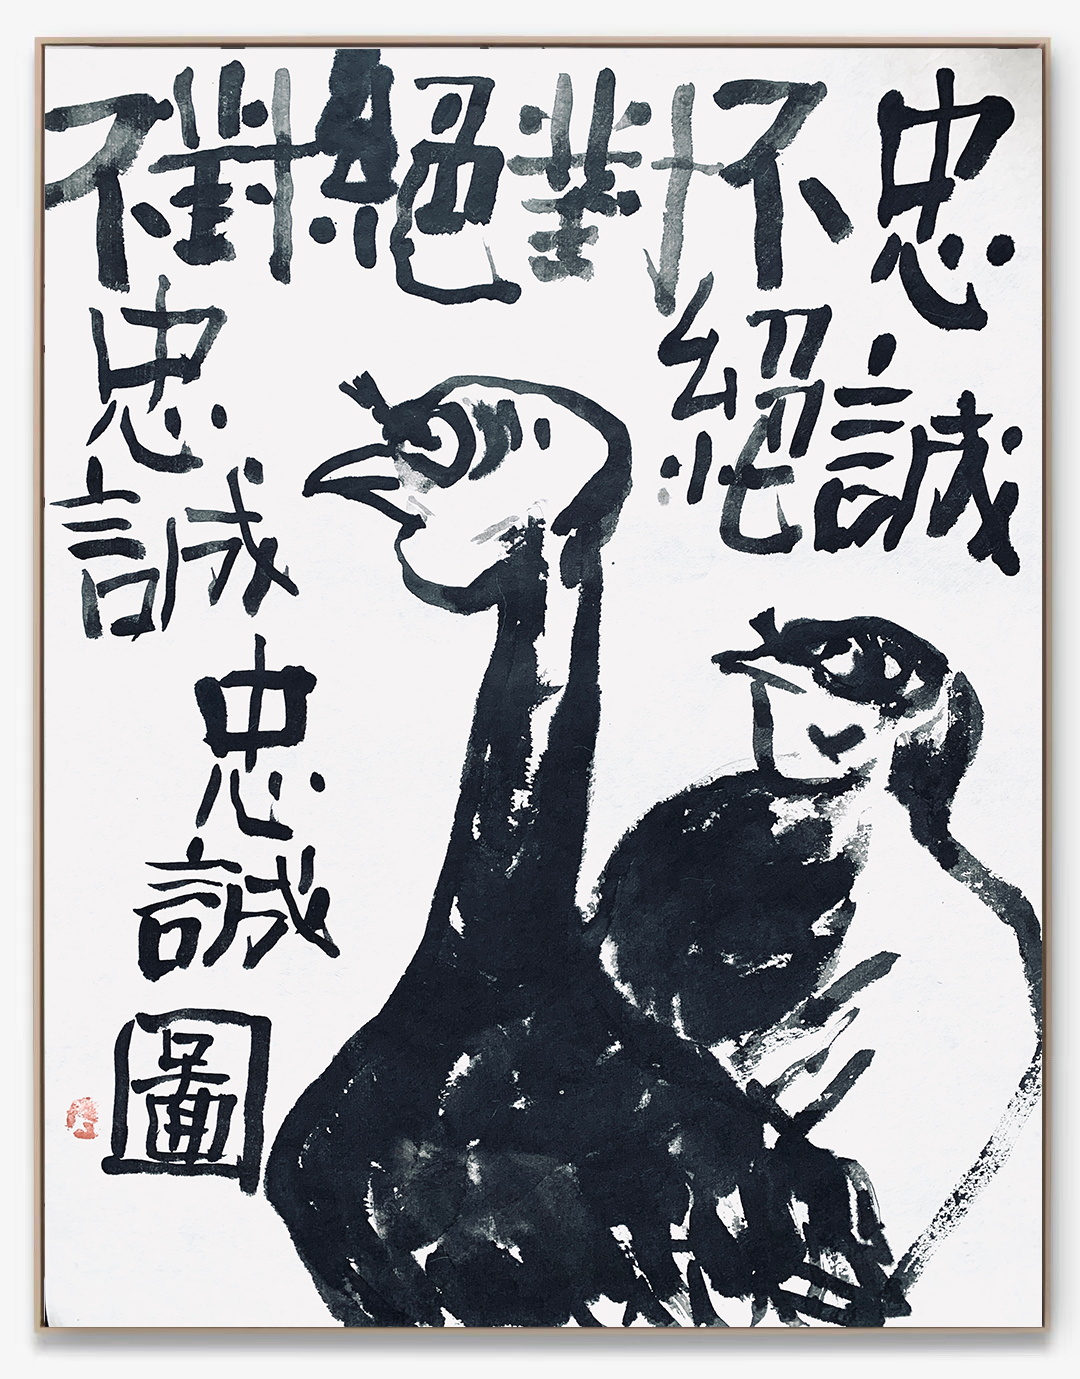 忠誠
不絕
對
絕
對
不忠誠忠誠圖